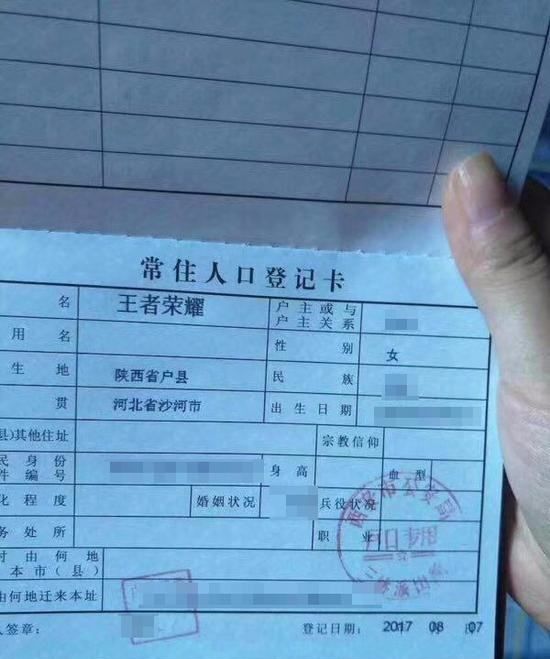 常住人口登记卡
名 王者荣耀 户主或与户主关系
用名 性别 女
生地 陕西省户县 民族
贯 河北省沙河市 出生日期
县)其他住址 宗教信仰
民身份
件编号 身高 血型
化程度 婚姻状况 兵役状况
务处所 职业
时由何地
本市(县)
由何地迁来本址
人签章: 登记日期: 2017 08 07
西安市公安局
户口专用